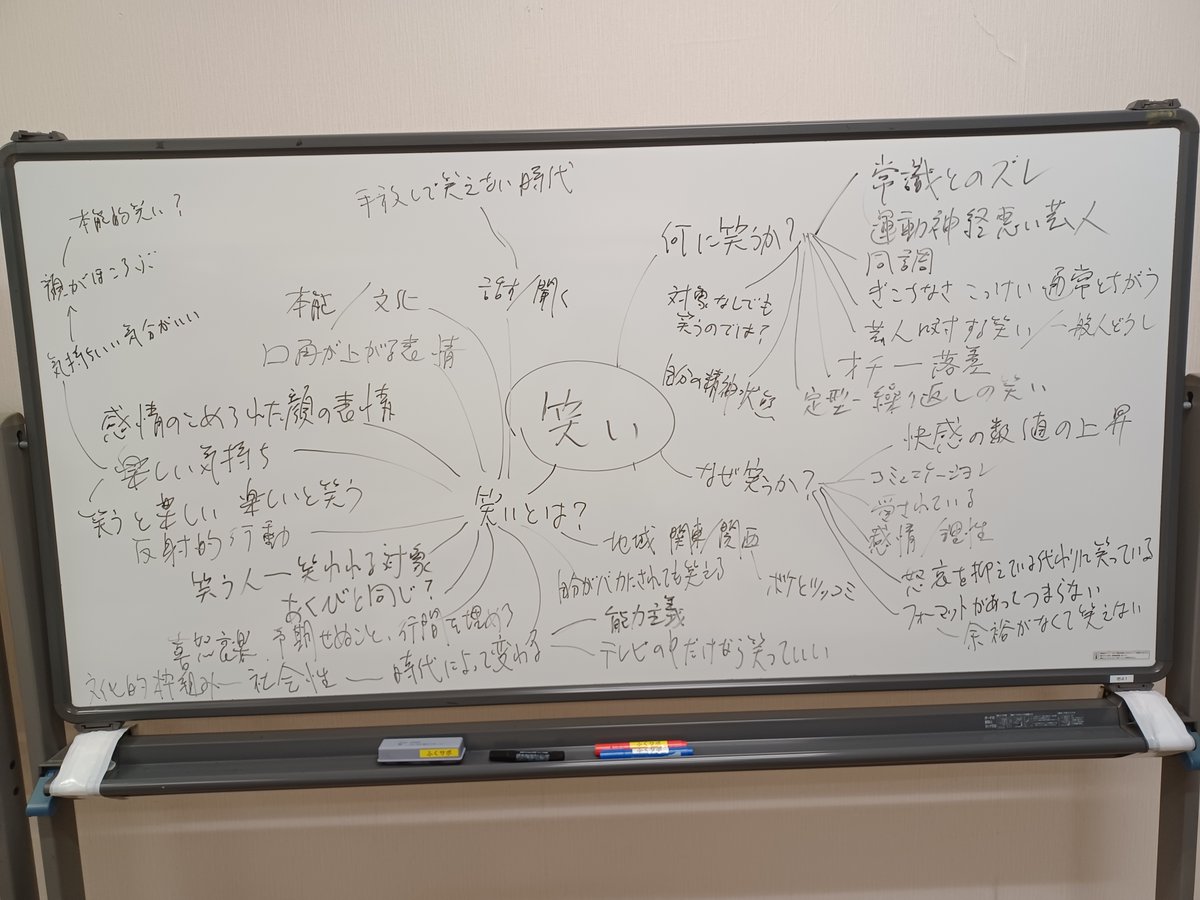 手放しで笑えない時代
本能的笑い?
顔がほころぶ
気持ちいい 気分がいい
本能/文化
話す/聞く
口角が上がる表情
感情のこめられた顔の表情
楽しい気持ち
笑うと楽しい 楽しいと笑う
反射的行動
笑う人ー笑われる対象
あくびと同じ?
喜怒哀楽 予期せぬこと、行間を埋める
文化的枠組みー社会性ー時代によって変わる
笑い
笑いとは?
地域 関東/関西
ボケとツッコミ
自分がバカにされても笑える
能力主義
テレビの中だけなら笑っていい
何に笑うか?
常識とのズレ
運動神経悪い芸人
同調
ぎこちなさ こっけい 通常とちがう
芸人に対する笑い/一般人どうし
オチー落差
定型ー繰り返しの笑い
対象なしでも
笑うのでは?
自分の精神状態
なぜ笑うか?
快感の数値の上昇
コミュニケーション
愛されている
感情/理性
怒哀を抑えている代わりに笑っている
フォーマットがあってつまらない
余裕がなくて笑えない
ふくりボ
ふくりボ